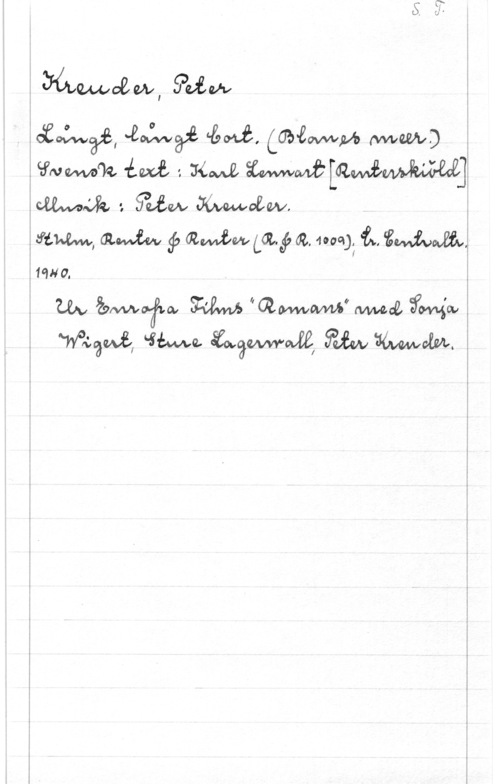 S. F.
Kreuder, Peter
Långt, långt bort. (Blaues meer.)
Svensk text : Karl Lennart [Reuterskiöld]
Musik : Peter Kreuder.
Sthlm, Reuter & Reuter (R. & R. 1009), tr. Centraltr.
1940.
Ur Europa Films "Romans" med Sonja
Wigert, Sture Lagerwall, Peter Kreuder.